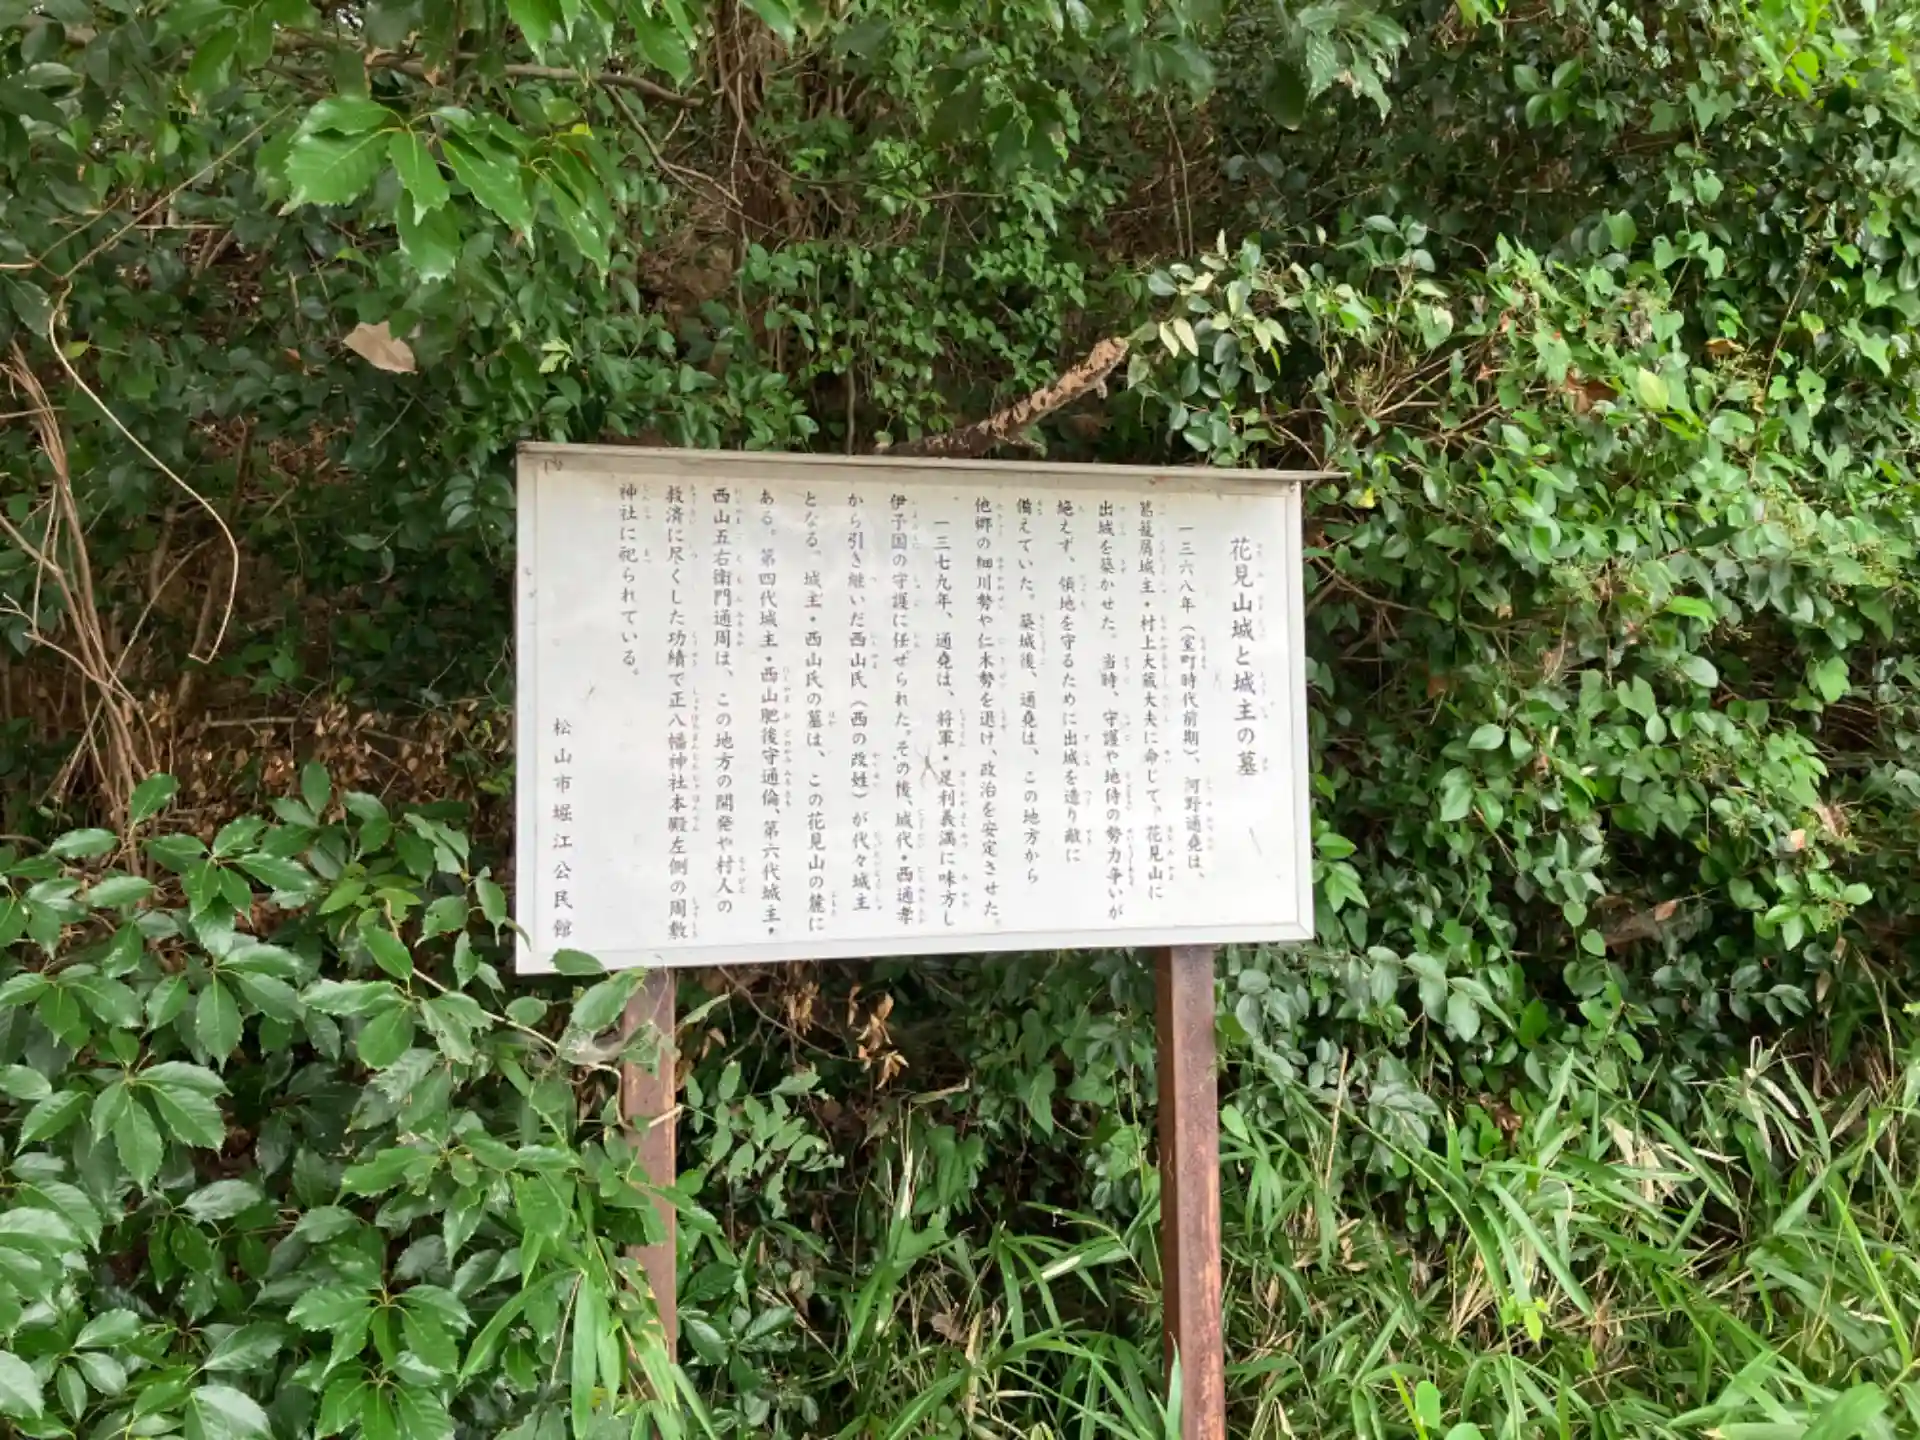 花見山城と城主の墓
一三六八年（室町時代前期）、河野通堯は、
葛籠屑城主・村上大蔵大夫に命じて、花見山に
出城を築かせた。当時、守護や地侍の勢力争いが
絶えず、領地を守るために出城を造り敵に
備えていた。築城後、通堯は、この地方から
他郷の細川勢や仁木勢を退け、政治を安定させた。
一三七九年、通堯は、将軍・足利義満に味方し
伊予国の守護に任ぜられた。その後、城代・西通孝
から引き継いだ西山氏（西の改姓）が代々城主
となる。城主・西山氏の墓は、この花見山の麓に
ある。第四代城主・西山肥後守通倫、第六代城主・
西山五右衛門通周は、この地方の開発や村人の
救済に尽くした功績で正八幡神社本殿左側の周敷
神社に祀られている。
松山市堀江公民館